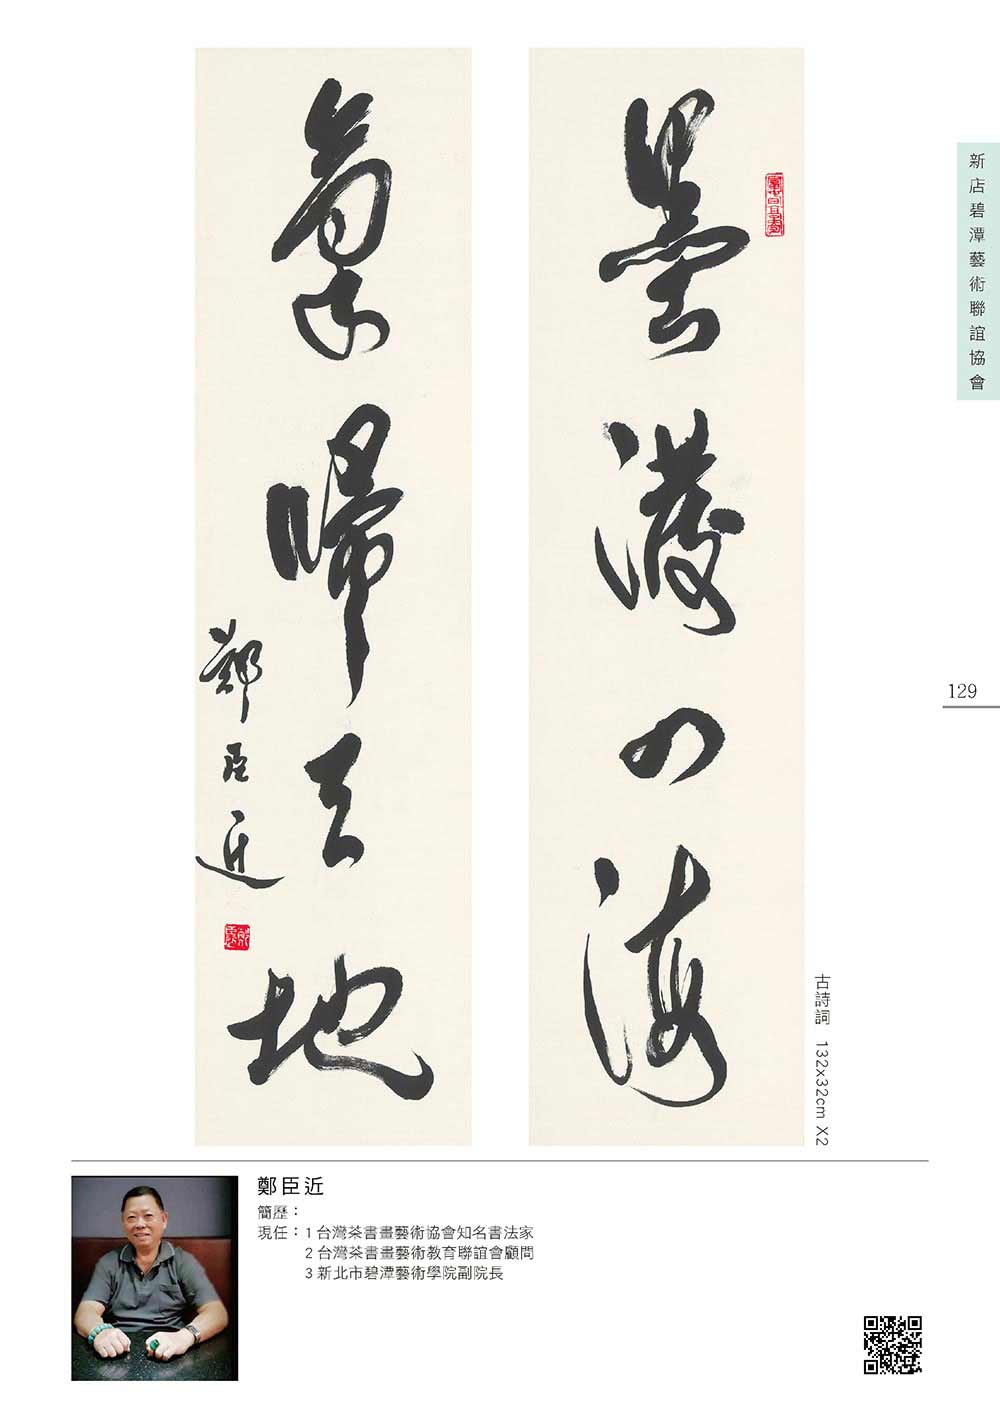 新店碧潭藝術聯誼協會
129
墨潑四海
歸天地
鄭臣近
古詩詞 132x32cm X2
鄭臣近
簡歷：
現任：1 台灣茶書畫藝術協會知名書法家
2 台灣茶書畫藝術教育聯誼會顧問
3 新北市碧潭藝術學院副院長